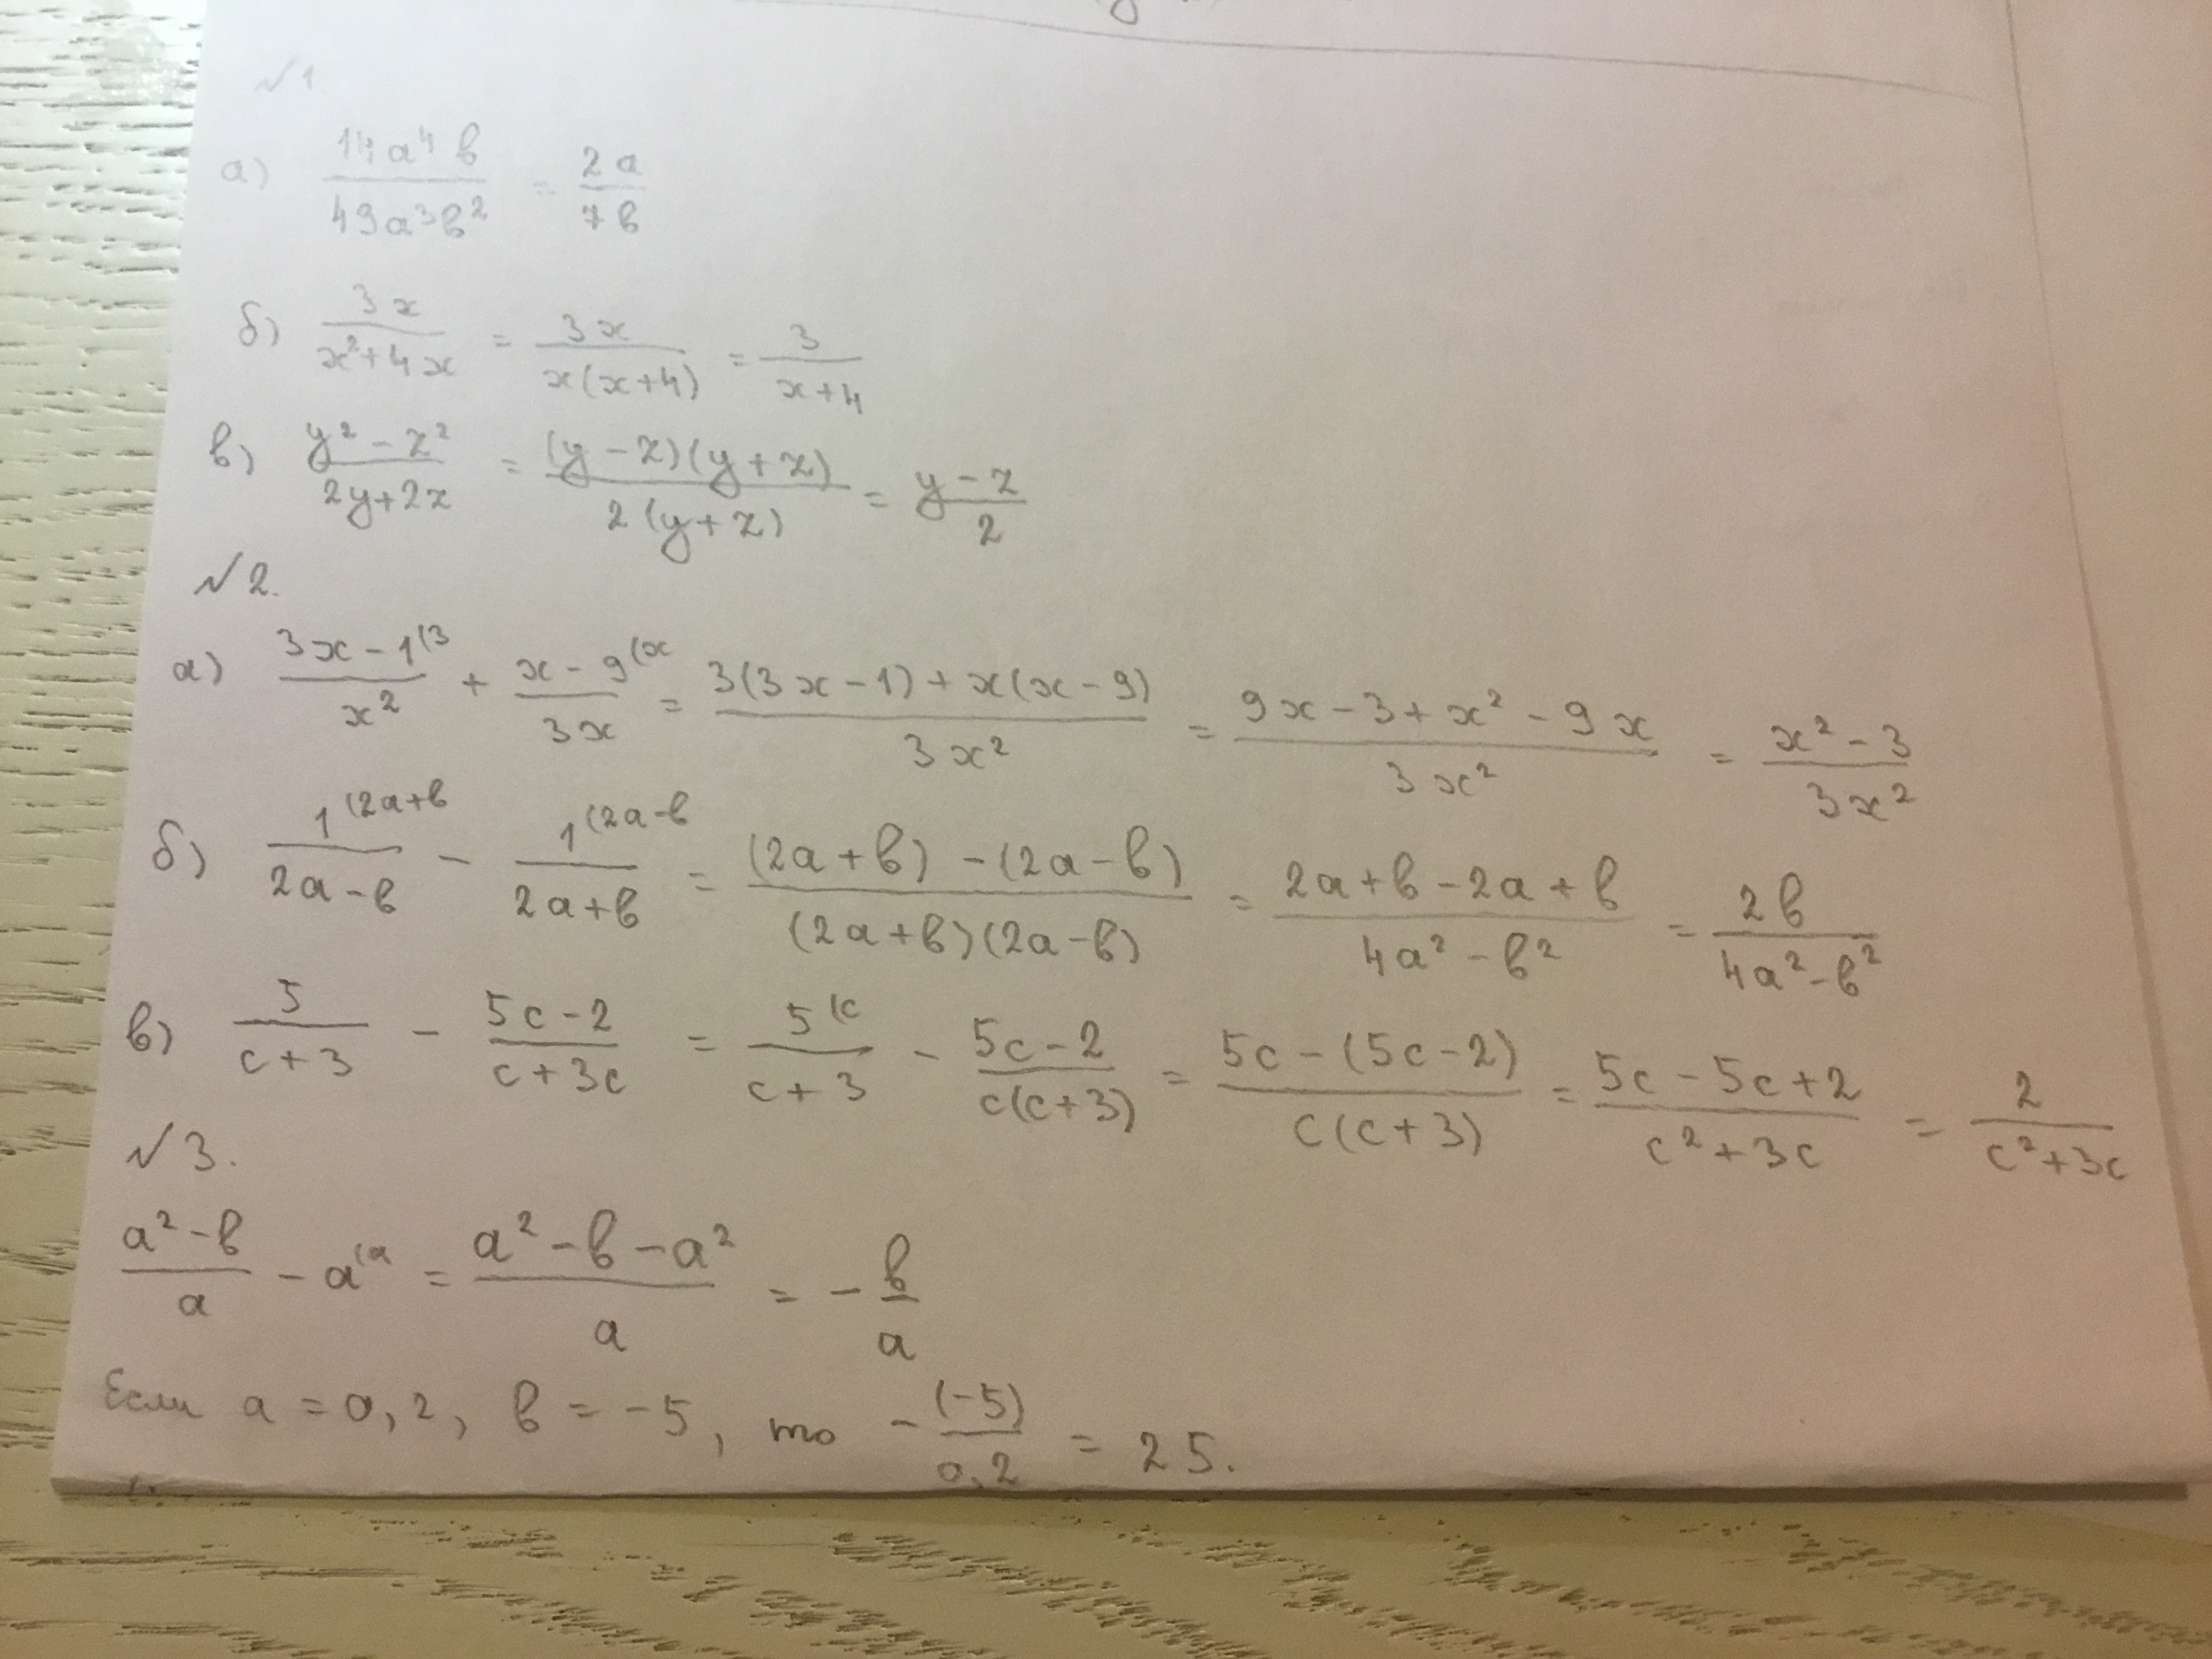 №1.
а) 14a⁴b/49a³b² = 2a/7b
б) 3x/x²+4x = 3x/x(x+4) = 3/x+4
в) y²-z²/2y+2z = (y-z)(y+z)/2(y+z) = y-z/2
№2.
а) 3x-1⁽³/x² + x-9⁽ˣ/3x = 3(3x-1)+x(x-9)/3x² = 9x-3+x²-9x/3x² = x²-3/3x²
б) 1⁽²ᵃ⁺ᵇ/2a-b - 1⁽²ᵃ⁻ᵇ/2a+b = (2a+b)-(2a-b)/(2a+b)(2a-b) = 2a+b-2a+b/4a²-b² = 2b/4a²-b²
в) 5/c+3 - 5c-2/c+3c = 5⁽ᶜ/c+3 - 5c-2/c(c+3) = 5c-(5c-2)/c(c+3) = 5c-5c+2/c²+3c = 2/c²+3c
№3.
a²-b/a - a⁽ᵃ = a²-b-a²/a = -b/a
Если a=0,2, b=-5, то -(-5)/0,2 = 25.